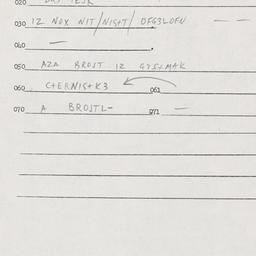 020
030 12 NOX NIT/NIS+T/ OFG3LOFN — —
040 —
050 AZA BROST 12
060 C+ERNIS+K3 061
070 A BROSTL- 071 —